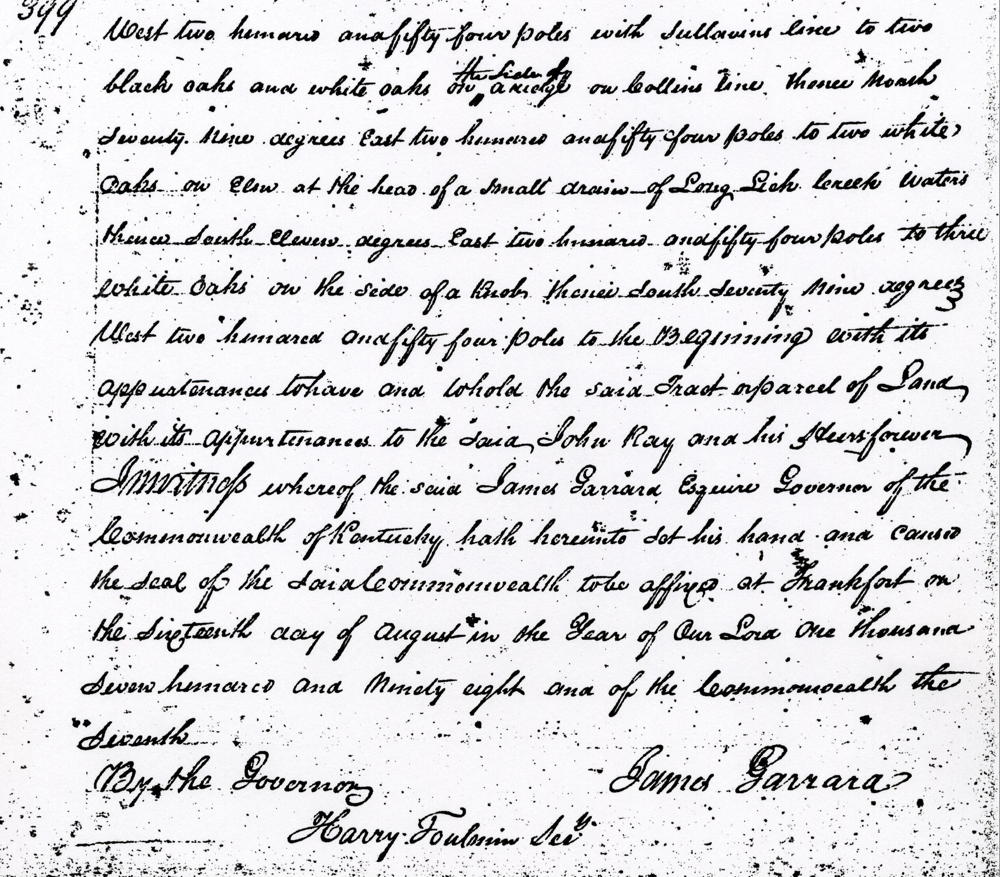 399
West two hundred andfifty four poles with Sullavins line to two
the side of
black oaks and white oaks on a ridge on Collins line thence North
Seventy Nine degrees East two hundred andfifty four poles to two white
Oaks on Elm at the head of a small drain of Long Lick Creek Waters
thence South Eleven degrees East two hundred andfifty four poles to three
white Oaks on the side of a Knob thence South Seventy Nine degrees
West two hundred andfifty four poles to the Beginning with its
appurtenances tohave and tohold the said Tract orparcel of Land
with its appurtenances to the said John Ray and his Heirs forever
Inwitness whereof the said James Garrard Esquire Governor of the
Commonwealth of Kentucky hath hereunto set his hand and caused
the seal of the said Commonwealth tobe affixed at Frankfort on
the Sixteenth day of August in the Year of Our Lord One thousand
Seven hundred and Ninety eight and of the Commonwealth the
Seventh
By the Governor James Garrard
Harry Toulmin Secy